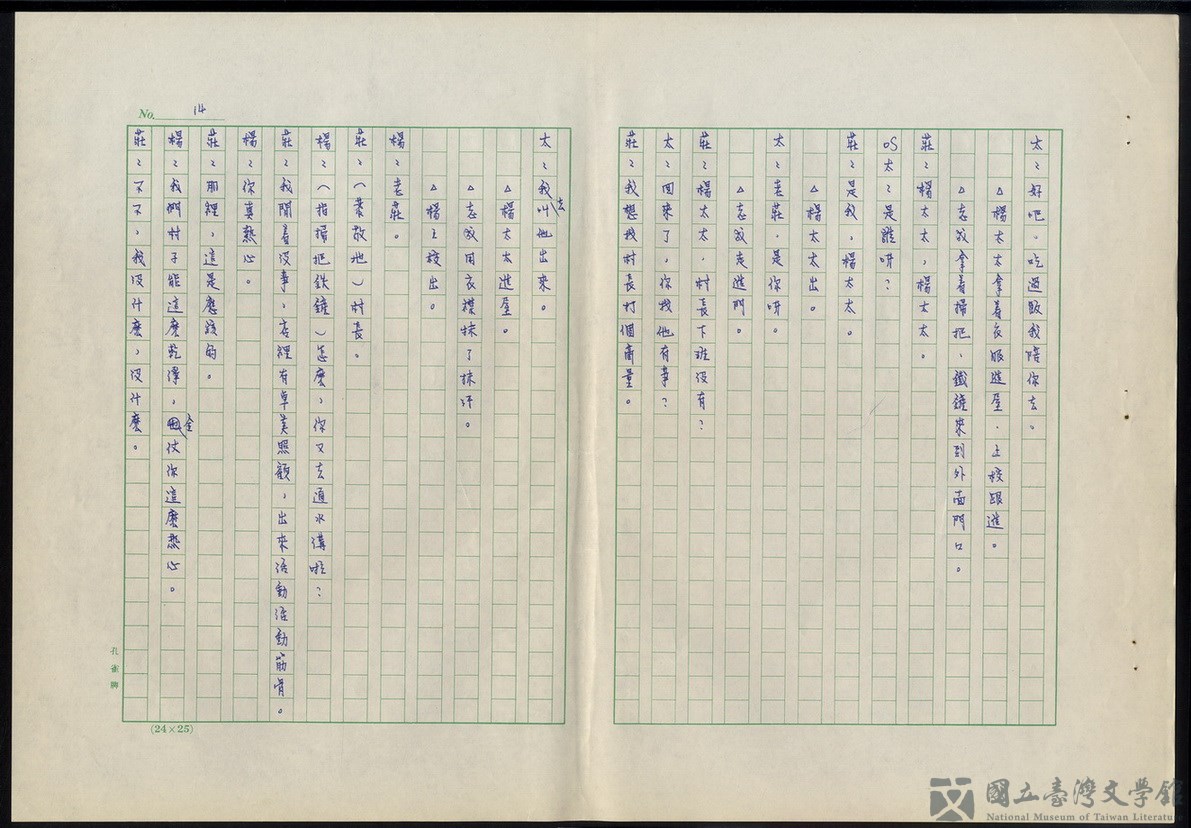 太：好吧。吃過飯我陪你去。
△楊太太拿着衣服進屋．上校跟進。
△志成拿着掃把、鐵鏟來到外面門口。
莊：楊太太，楊太太。
OS太：是誰呀？
莊：是我，楊太太。
△楊太太出。
太：老莊．是你呀。
△志成走進門。
莊：楊太太．村長下班沒有？
太：回來了，你找他有事？
莊：我想找村長打個商量。
太：我去叫他出來。
△楊太太進屋。
△志成用衣襟抹了抹汗。
△楊上校出。
楊：老莊。
莊：（恭敬地）村長。
楊：（指掃把鉄鏟）怎麼，你又去通水溝啦？
莊：我閒着沒事，店裡有卓美照顧，出來活動活動筋骨。
楊：你真熱心。
莊：那裡，這是應該的。
楊：我們村子能這麼乾淨，全仗你這麼熱心。
莊：不不，我沒什麼，沒什麼。
No. 14
孔雀牌
(24×25)
國立臺灣文學館
National Museum of Taiwan Literature